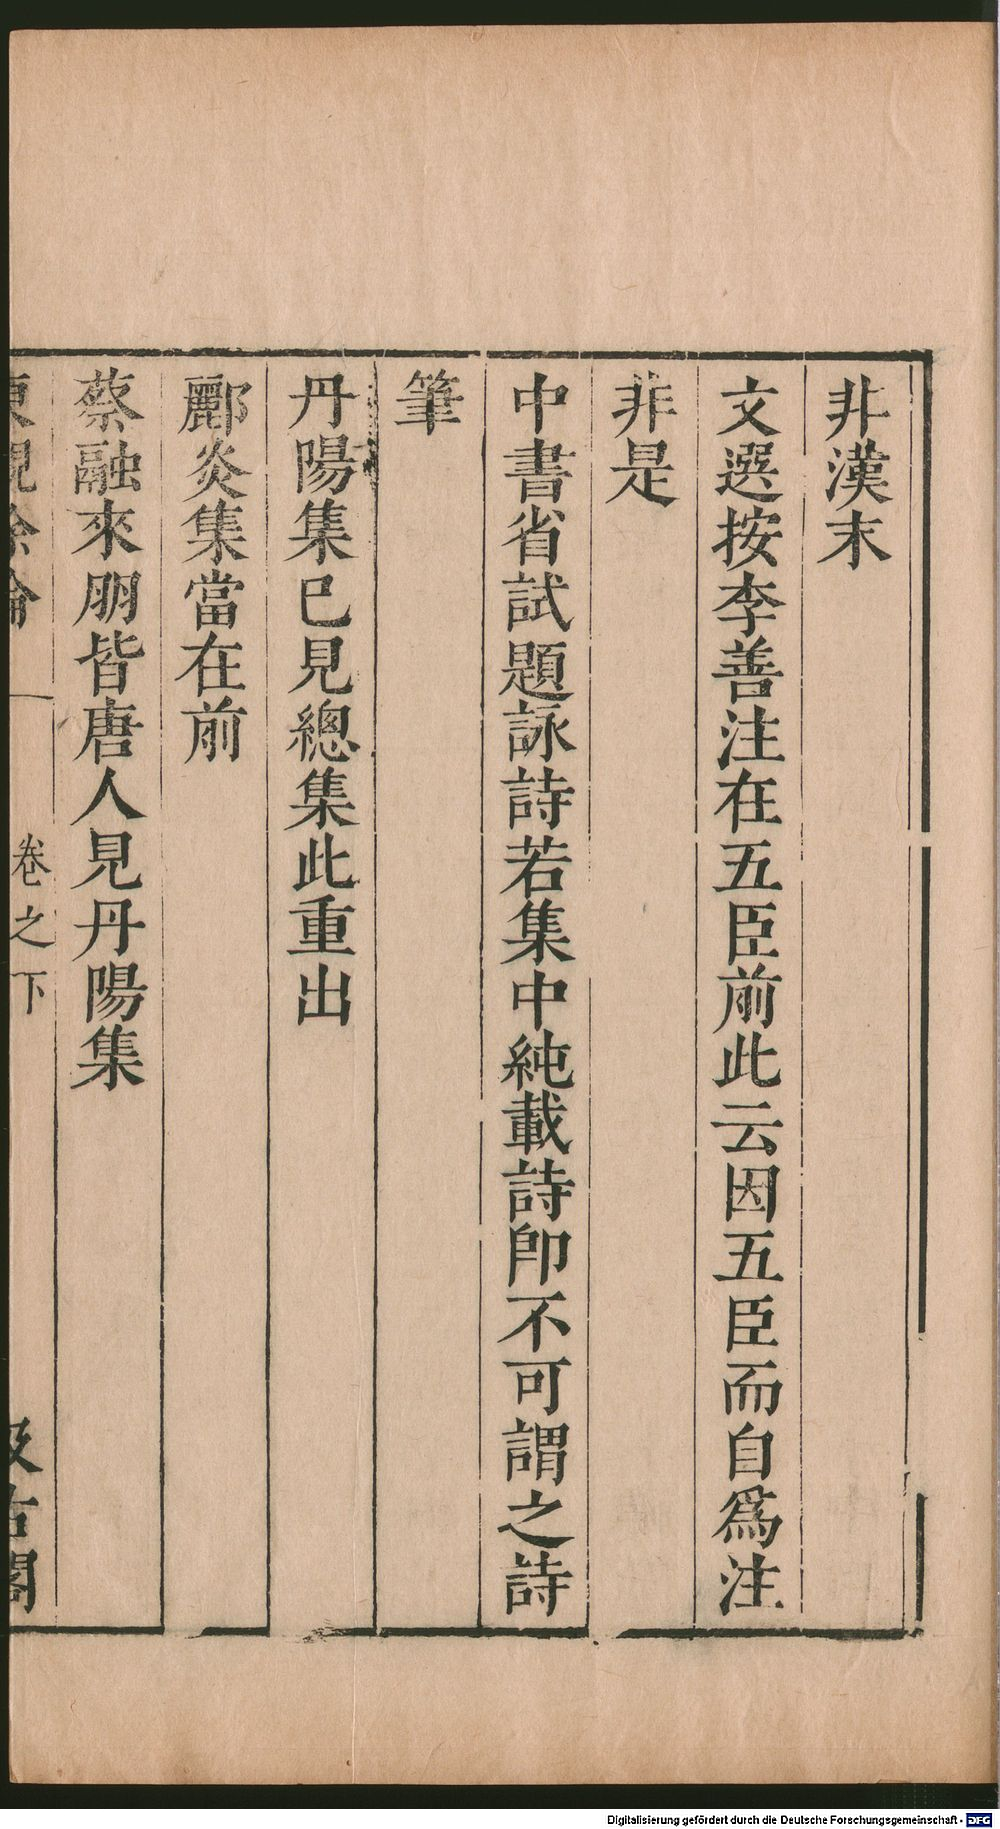 非漢末
文選按李善注在五臣前此云因五臣而自爲注
非是
中書省試題詠詩若集中純載詩卽不可謂之詩
筆
丹陽集已見總集此重出
酈炎集當在前
蔡融來朋皆唐人見丹陽集
東觀餘論 卷之下 汲古閣
Digitalisierung gefördert durch die Deutsche Forschungsgemeinschaft - DFG